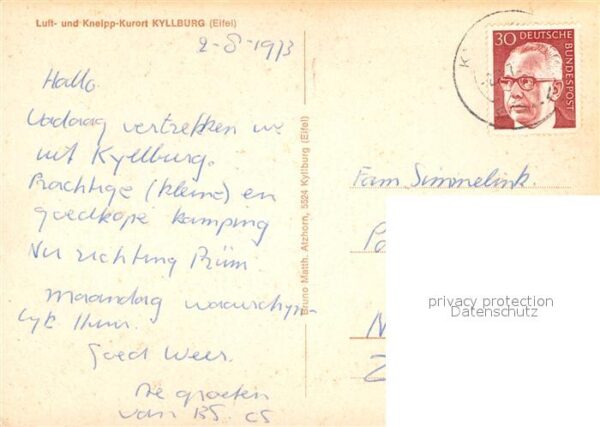 Luft- und Kneipp-Kurort KYLLBURG (Eifel)
2-8-1973
Hallo
Vandaag vertrekken we
uit Kyllburg.
Prachtige (kleine) en
goedkope kamping
Nu richting Prüm
Maandag waarschijn-
lijk thuis.
Goed Weer.
De groeten
van
Bruno Matth. Atzhorn, 5524 Kyllburg (Eifel)
30 DEUTSCHE
BUNDESPOST
Fam Simmelink.
privacy protection
Datenschutz